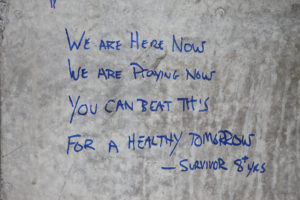 We are Here Now
We are Praying Now
You can beat this
For a healthy tomorrow
— Survivor 8+ yrs